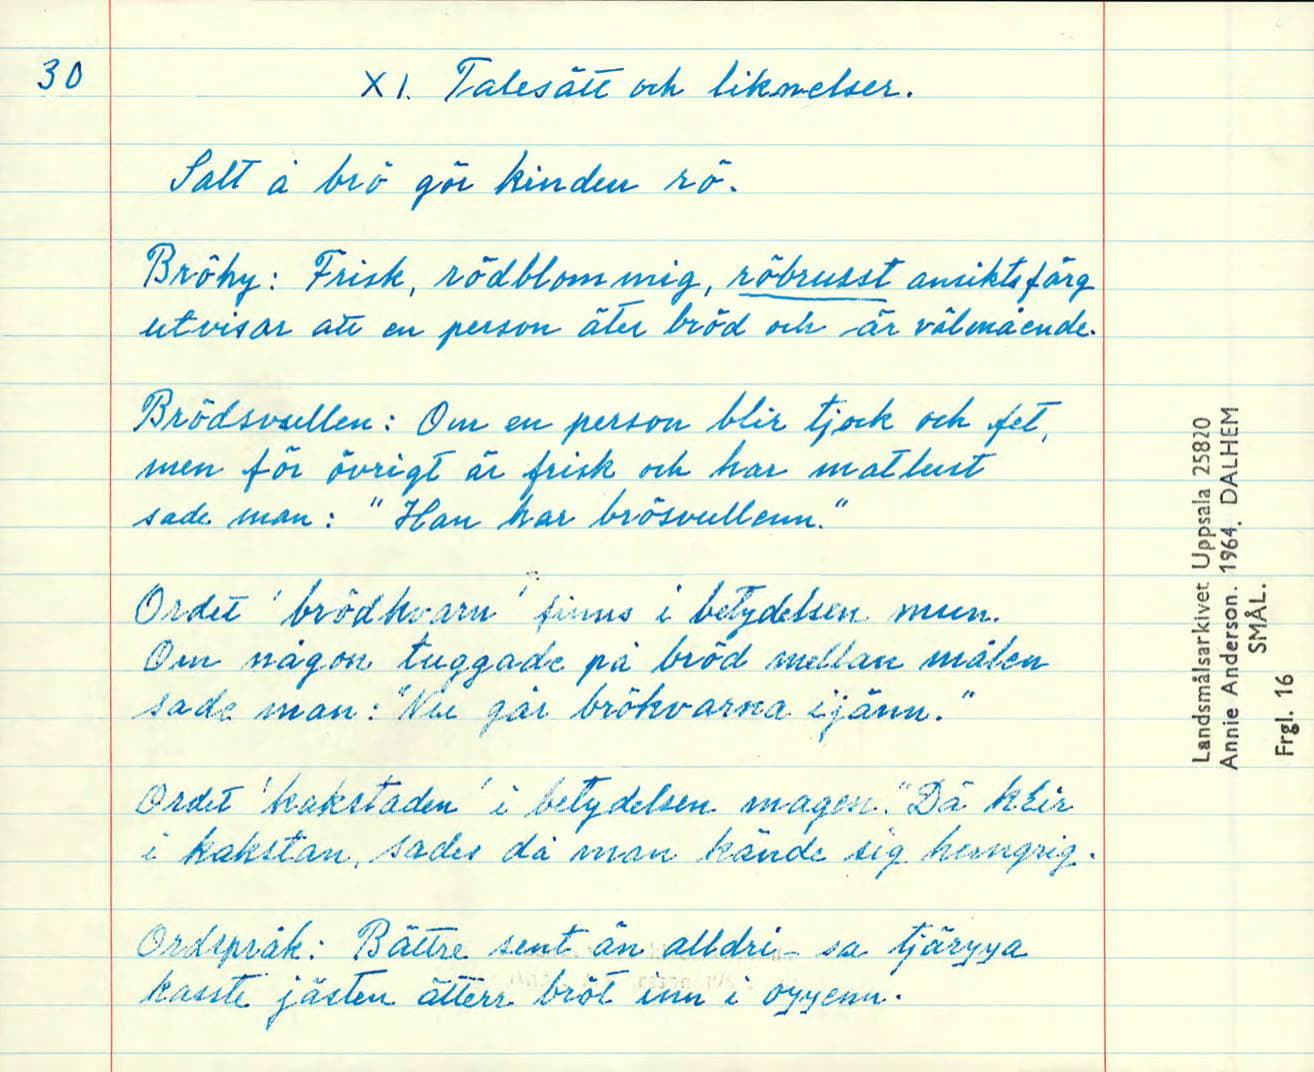 30
XI. Talesätt och liknelser.
Salt å brö gör kinden rö.
Bröhy: Frisk, rödblommig, röbrusst ansiktsfärg
utvisar att en person äter bröd och är välmående.
Brödsvullen: Om en person blir tjock och fet,
men för övrigt är frisk och har matlust
sade man: "Han har brösvullenn."
Ordet 'brödkvarn' finns i betydelsen mun.
Om någon tuggade på bröd mellan målen
sade man: "Nu går brökvarna ijänn."
Ordet 'kakstaden' i betydelsen magen. "Dä
i kakstan, sades då man kände sig hungrig.
Ordspråk: Bättre sent än alldri – sa
kasste jästen ätterr bröt inn i
Landsmålsarkivet Uppsala 25820
Annie Anderson. 1964. DALHEM
SMÅL.
Frgl. 16